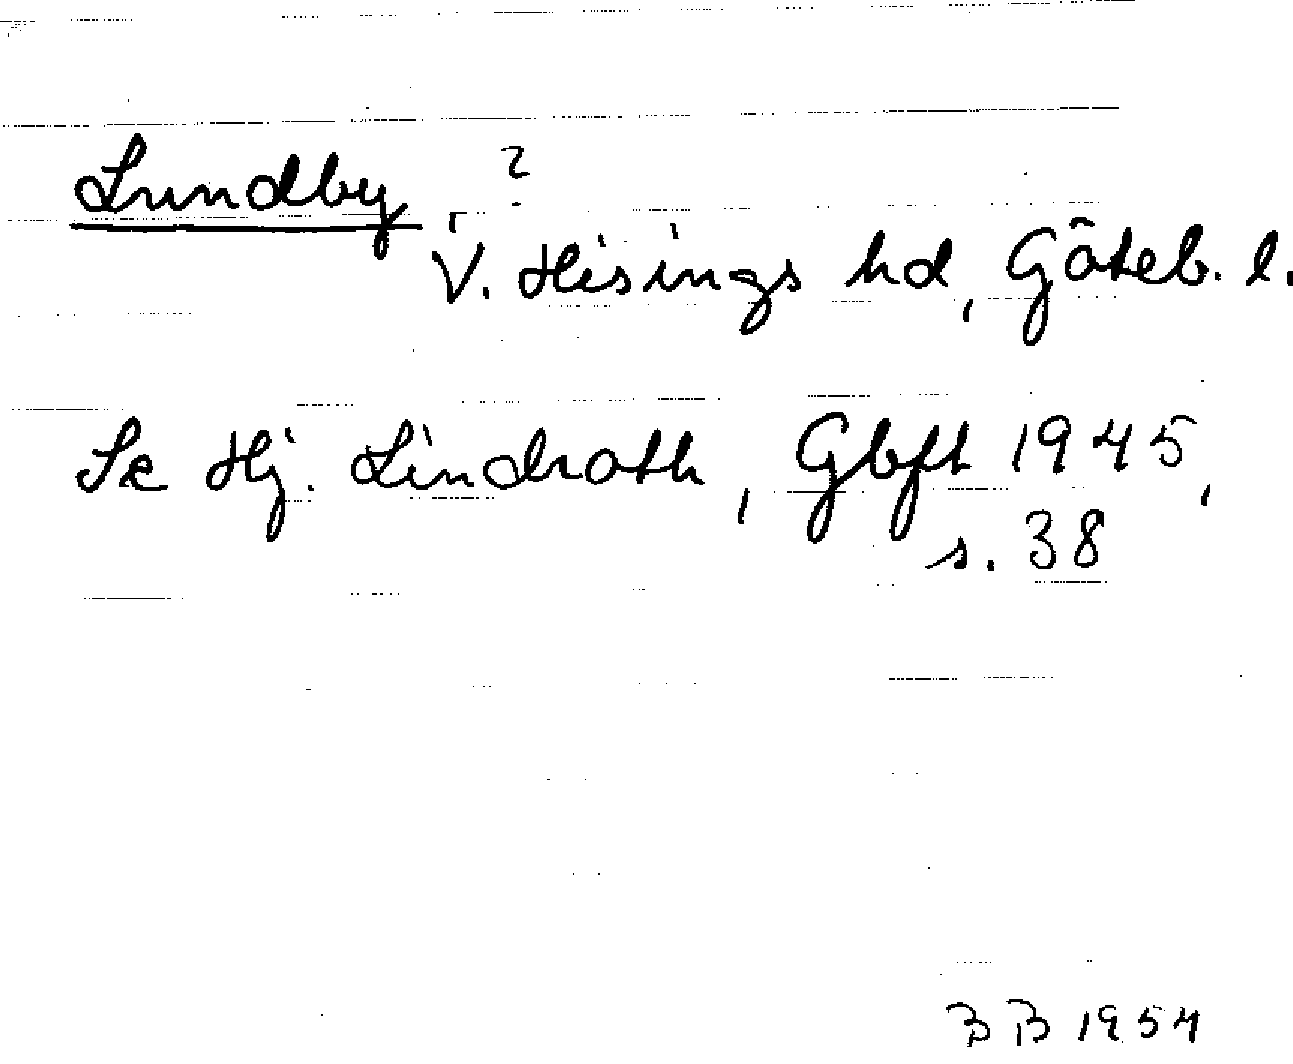 Lundby ?
V. Hisings hd, Göteb. l.
Se Hj. Lindroth, Gbft 1945,
s. 38
BB 1954